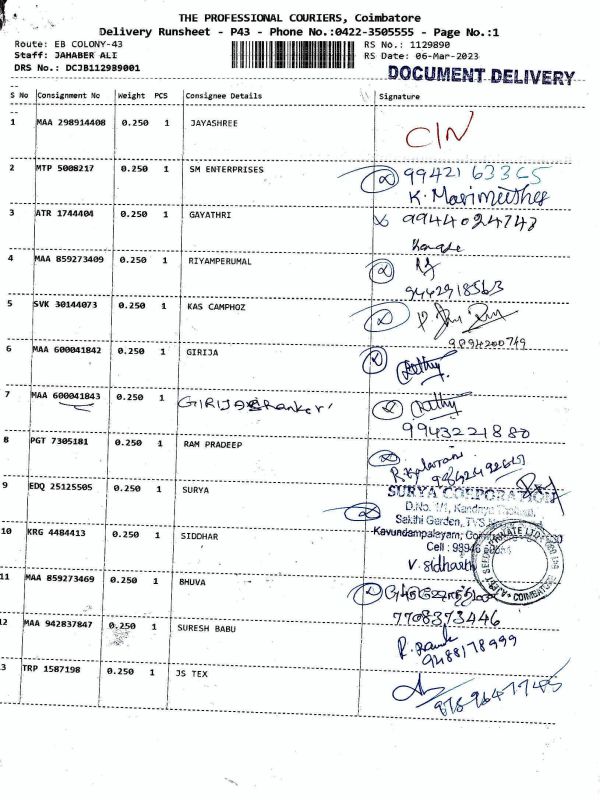 THE PROFESSIONAL COURIERS, Coimbatore
Delivery Runsheet - P43 - Phone No.:0422-3505555 - Page No.:1
Route: EB COLONY-43 RS No.: 1129890
Staff: JAHABER ALI RS Date: 06-Mar-2023
DRS No.: DCJB112989001
DOCUMENT DELIVERY
S No Consignment No Weight PCS Consignee Details Signature
1 MAA 298914408 0.250 1 JAYASHREE
C/N
2 MTP 5008217 0.250 1 SM ENTERPRISES 99421 63365
K. Marimuthu
3 ATR 1744404 0.250 1 GAYATHRI 9944024743
4 MAA 859273409 0.250 1 RIYAMPERUMAL
9442918563
5 SVK 30144073 0.250 1 KAS CAMPHOZ
9894200749
6 MAA 600041842 0.250 1 GIRIJA
7 MAA 600041843 0.250 1 GIRIJA
9943221880
8 PGT 7305181 0.250 1 RAM PRADEEP
9 EDQ 25125505 0.250 1 SURYA SURYA CORPORATION
Sakthi Garden, TVS
10 KRG 4484413 0.250 1 SIDDHAR Kavundampalayam,
Cell :
V. Sidharth
11 MAA 859273469 0.250 1 BHUVA
7708373446
12 MAA 942837847 0.250 1 SURESH BABU
9488178999
3 TRP 1587198 0.250 1 JS TEX